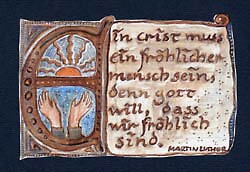 Ein crist mus
ein fröhlicher
mensch sein,
denn gott
will dass
wir fröhlich
sind.
MARTIN LUTHER